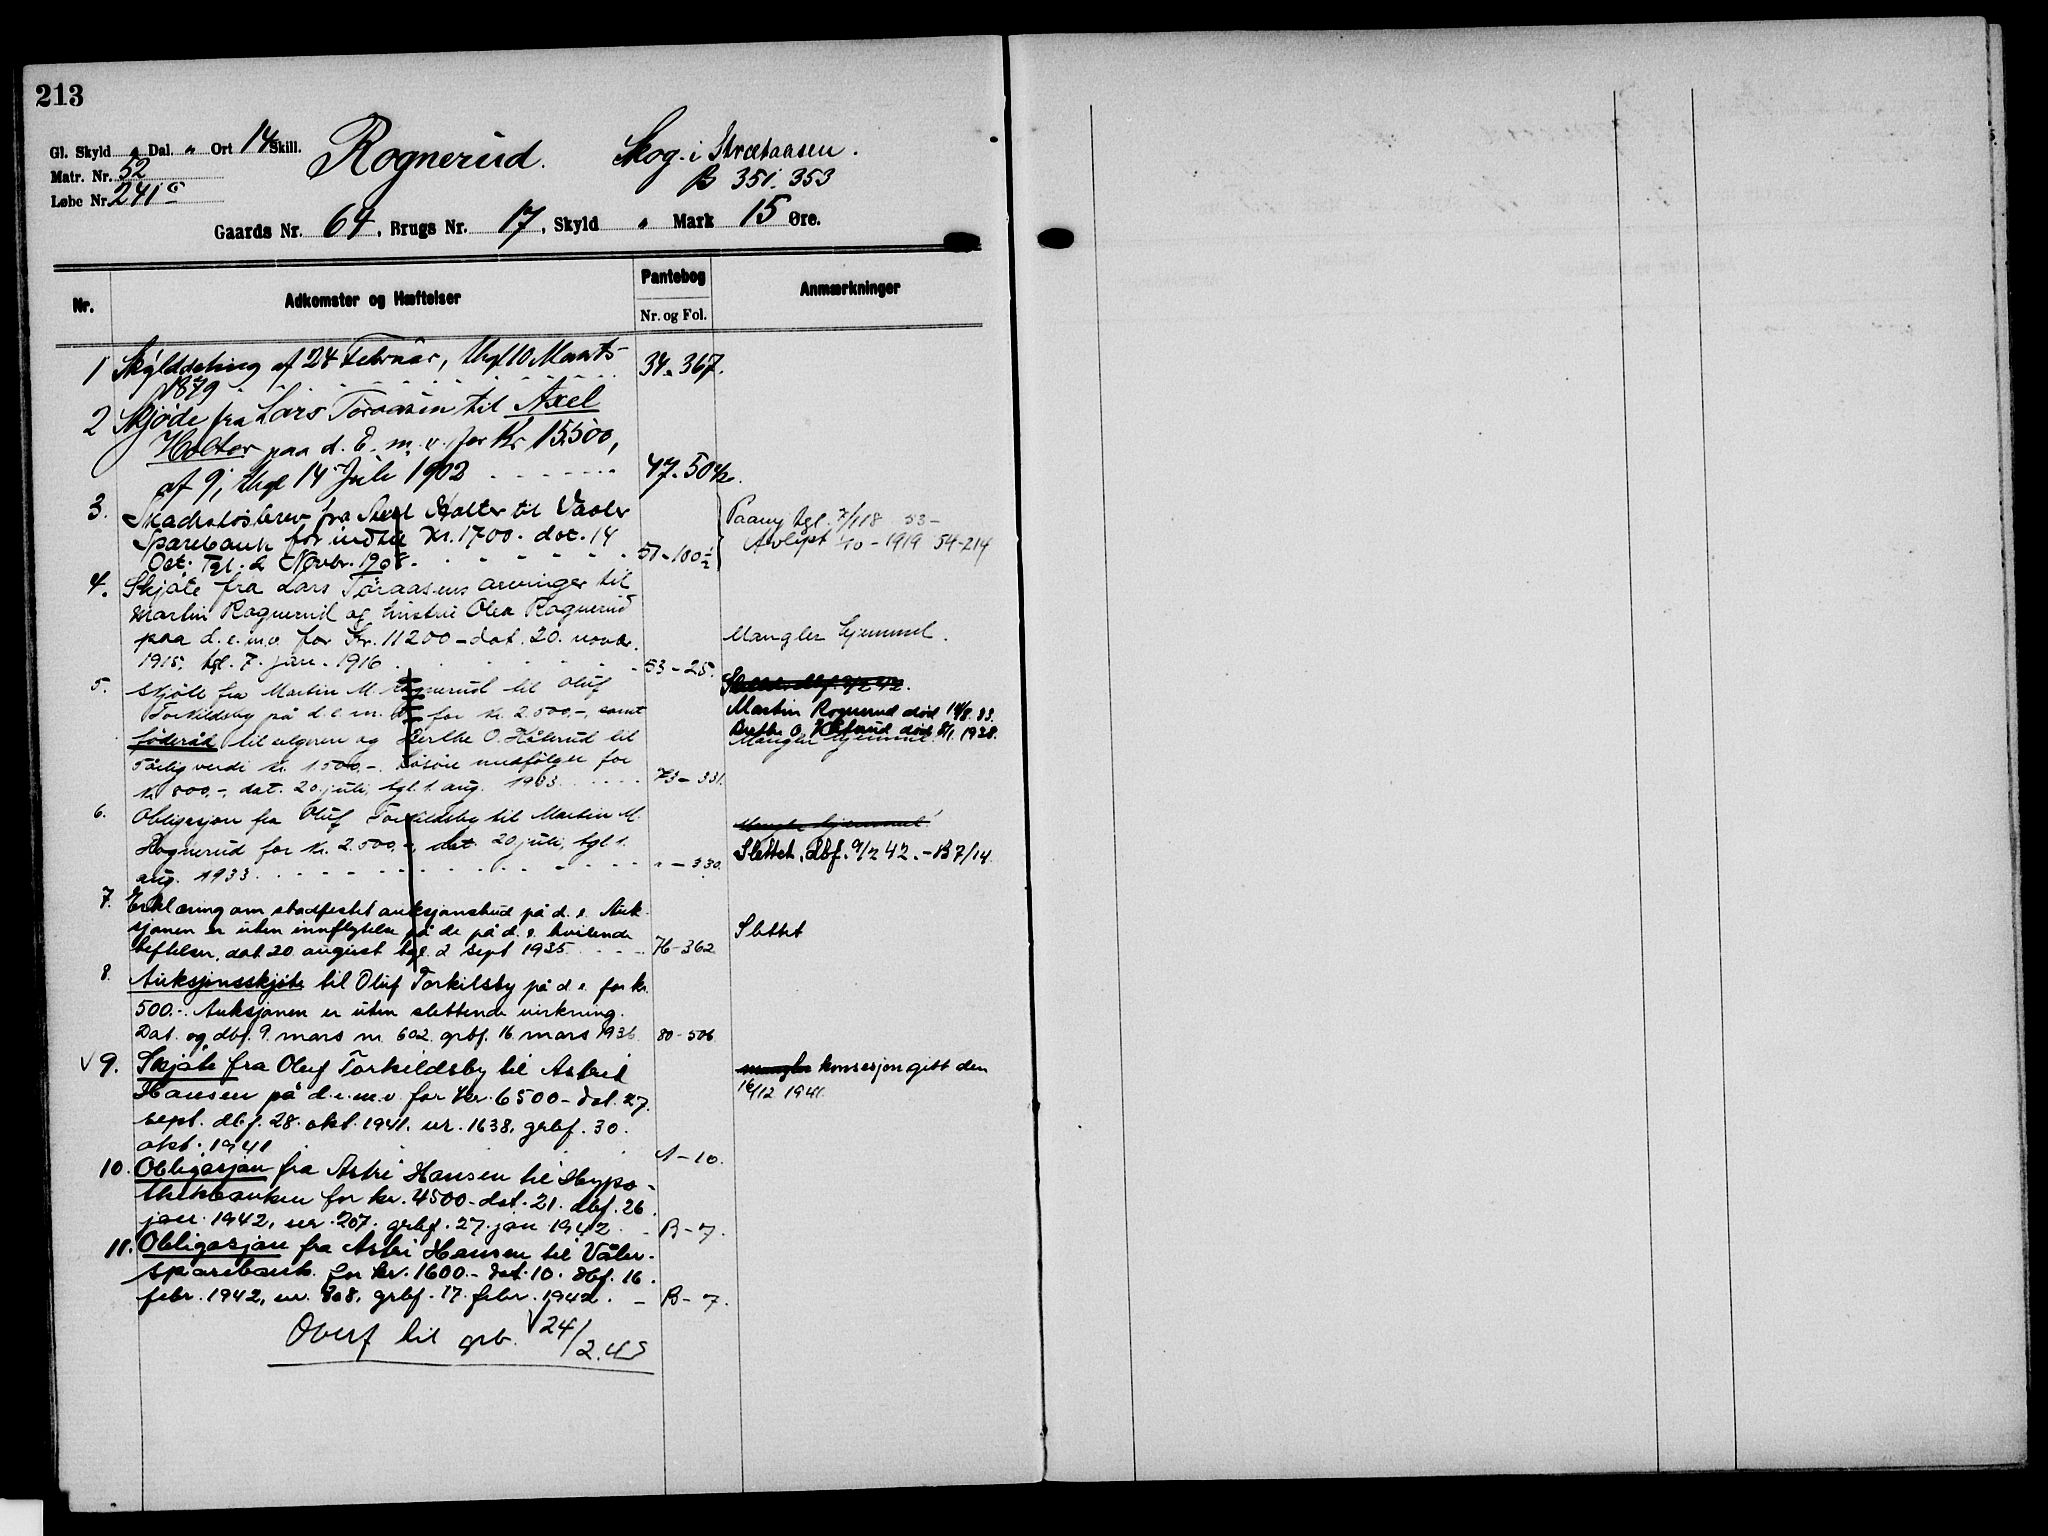 213
Gl. Skyld „ Dal. „ Ort 14 Skill.
Matr. Nr. 52
Løbe Nr. 241 c
Rognerud.
Skog i Strætaasen.
B 351. 353
Gaards Nr. 64, Brugs Nr. 17, Skyld „ Mark 15 Øre.
Nr.
Adkomster og Hæftelser
Pantebog
Nr. og Fol.
Anmærkninger
1 Skylddeling af 24 Februar, thgl 10 Marts 34-367.
1879
2 Skjøde fra Lars Toraasen til Axel
Holter paa d. E. m. v. for Kr 15500,
af 9, thgl 14 Juli 1902 47-504
3. Skadesløsbrev fra Axel Holter til Vaaler
Sparebank for indtil Kr. 1700. dat. 14
Oct. Tgl. 2 Novbr. 1908. 51-100
Paany tgl. 7/1 18 53-
Avlyst 1/10-1919 54-214
4. Skjøte fra Lars Toraasens arvinger til
Martin Rognerud og hustru Olea Rognerud
paa d.e.m.v. for Kr. 11200 - dat. 20. novbr.
1915, tgl. 7. jan. 1916. 53-25.
Mangler hjemmel.
5. Skjøte fra Martin M. Rognerud til Oluf
Torkildsby på d.e.m.v. for kr. 2.500.-, samt
føderåd til selgeren og Berthe O. Håberud til
5årlig verdi kr. 1500.-. Løsøre medfølger for
kr. 800.-, dat. 20. juli, tgl. 1. aug. 1933. 73-331.
Slettet dbf. 9/2 42.
Martin Rognerud død 14/8.33.
Berthe O. Håberud død 2/1.1938.
Mangler hjemmel.
6. Obligasjon fra Oluf Torkildsby til Martin M.
Rognerud for kr. 2.500.-, dat. 20 juli, tgl. 1.
aug. 1933. „-330.
Mangler hjemmel.
Slettet, dbf. 9/2 42.-B7/14.
7. Erklæring om stadfestet auksjonsbud på d.e. Auk-
sjonen er uten innflytelse på de på d.e. hvilende
heftelser, dat 20 august tgl. 2 sept 1935. 76-362
Slettet
8. Auksjonsskjøte til Oluf Torkilsby på d.e. for kr.
500.-. Auksjonen er uten slettende virkning.
Dat. og dbf. 9. mars nr. 602. grbf. 16 mars 1936 80-506
√ 9. Skjøte fra Oluf Torkildsby til Astrid
Hansen på d.e.m.v. for kr. 6500 - dat. 27.
sept. dbf. 28. okt. 1941. nr. 1638. grbf. 30.
okt. 1941 A-10.
mangler konsesjon gitt den
16/12 1941.
10. Obligasjon fra Astri Hansen til Hypo-
thekbanken for kr. 4500 - dat. 21. dbf. 26.
jan. 1942, nr. 207. grbf. 27. jan 1942 B-7.
11. Obligasjon fra Astri Hansen til Våler-
sparebank for kr. 1600.- dat. 10. dbf. 16.
febr. 1942, nr. 308, grbf. 17. febr. 1942. - B-7.
Overf til grb. √ 24/2.45